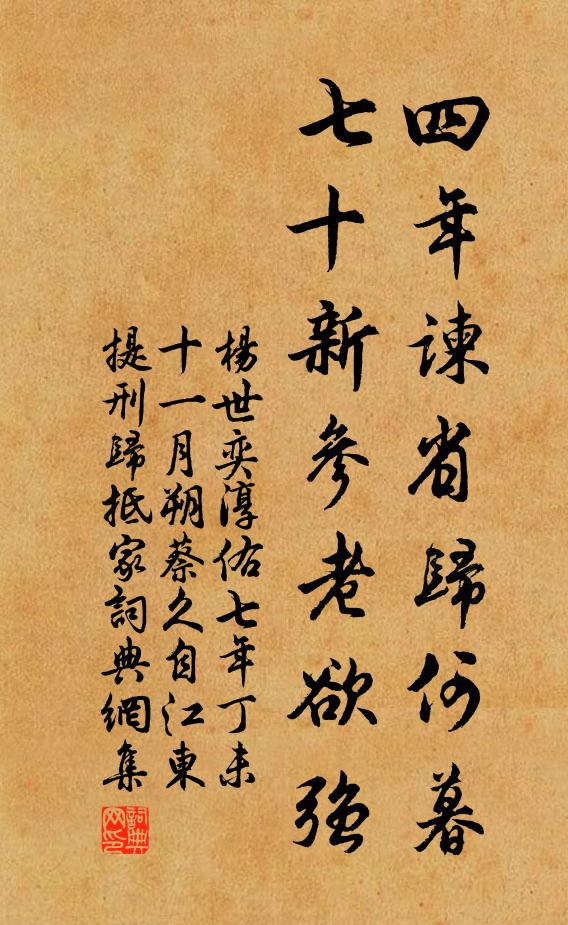 四年諫省歸何暮
七十新參老欲強
楊世奕淳佑七年丁未
十一月朔蔡久自江東
提刑歸抵家詞典網集
詞典网印